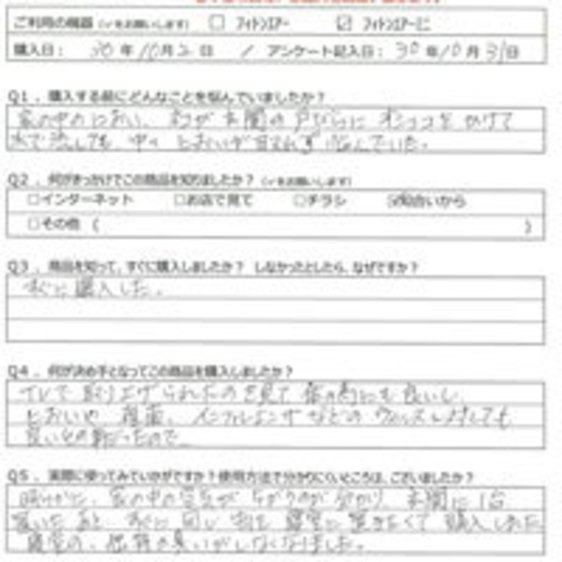 ご利用の機器（✓をお願いします） □ フィトンエアー ☑ フィトンエアーミニ
購入日： 30 年 10 月 2 日 ／ アンケート記入日： 30 年 10 月 31 日
Q1．購入する前にどんなことを悩んでいましたか？
家の中のにおい、ネコが玄関の戸びらにオシッコをかけて
水で流しても、中々 においが 悩んでいた。
Q2．何がきっかけでこの商品を知りましたか？（✓をお願いします）
□インターネット □お店で見て □チラシ ☑知合いから
□その他（ ）
Q3．商品を知って、すぐに購入しましたか？ しなかったとしたら、なぜですか？
すぐに購入した。
Q4．何が決め手となってこの商品を購入しましたか？
TVで取り上げられたのを見て 体の為にも良いし
においや 、インフルエンザなどのウィルスに対しても
良いとの事だったので
Q5．実際に使ってみていかがですか？使用方法で分かりにくいところは、ございましたか？
明らかに、家の中の空気が ちがうのが分かり、玄関に1台
置いたあと、すぐに 寝室に置きたくて購入しました
寝室の、 臭いがしなくなりました。